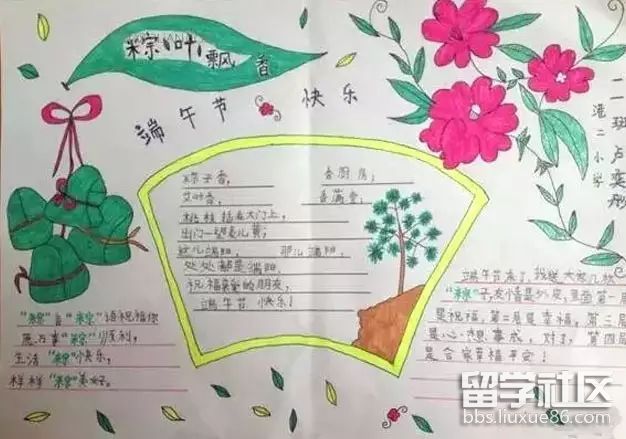 粽叶飘香
端午节 快乐
二一班 卢奕彤
港二小学
粽子香, 香厨房;
艾叶香, 香满堂;
桃枝插在大门上,
出门一望麦儿黄;
这儿端阳, 那儿端阳,
处处都是端阳,
祝福亲爱的朋友,
端午节快乐!
"粽"言"粽"语祝福你
愿万事"粽"顺利,
生活"粽"快乐,
样样"粽"美好。
端午节来了,我送大家几款
"粽"子,友情是外皮,里面第一层
是祝福,第二层是幸福,第三层
是心想事成,对了,第四层
是合家幸福平安!
留学社区
bbs.liuxue86.com